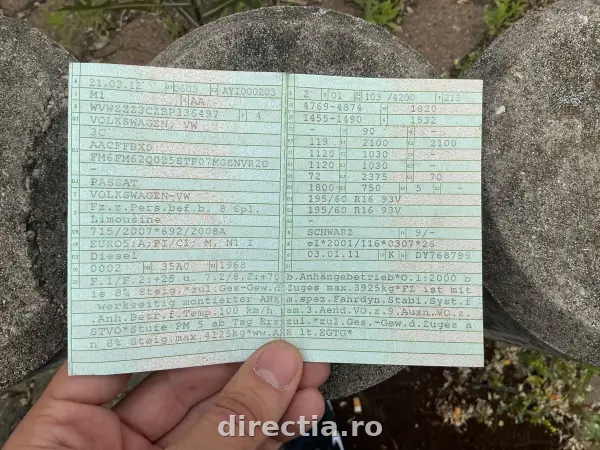 21.03.12 0603 AYI000203
M1 AA
WVWZZZ3CZBP336497 4
VOLKSWAGEN, VW
3C
AACFFBX0
FM6FM62Q025STP07MGSNVR20
-
PASSAT
VOLKSWAGEN-VW
Fz.z.Pers.bef.b. 8 Spl.
Limousine
715/2007*692/2008A
EURO5;A;PI/CI; M, N1 I
Diesel
0002 35A0 1968
2 01 103 /4200 213
4769-4874 1820
1455-1490 1532
- 90 -
119 2100 2100
1120 1030 -
1120 1030 -
72 2375 70
1800 750 5 -
195/60 R16 93V
195/60 R16 93V
-
SCHWARZ 9/-
e1*2001/116*0307*26
03.01.11 K DY768799
F.1/F.2:+25 u. 7.2/8.2:+70 b.Anhängebetrieb*O.1:2000 b
is 8% Steig.*zul.Ges-Gew.d.Zuges max.3925kg*FZ ist mit
werkseitig montierter AHK m.spez.Fahrdyn.Stabi.Syst.f
.Anh.Betr.f.Temp.100 km/h gem.3.Aend.VO.z.9.Ausn.VO.z.
STVO*Stufe PM 5 ab Tag Erstzul.*zul.Ges.-Gew.d.Zuges a
n 8% Steig.max.4125kg*ww.AHK lt.EGTG*
directia.ro